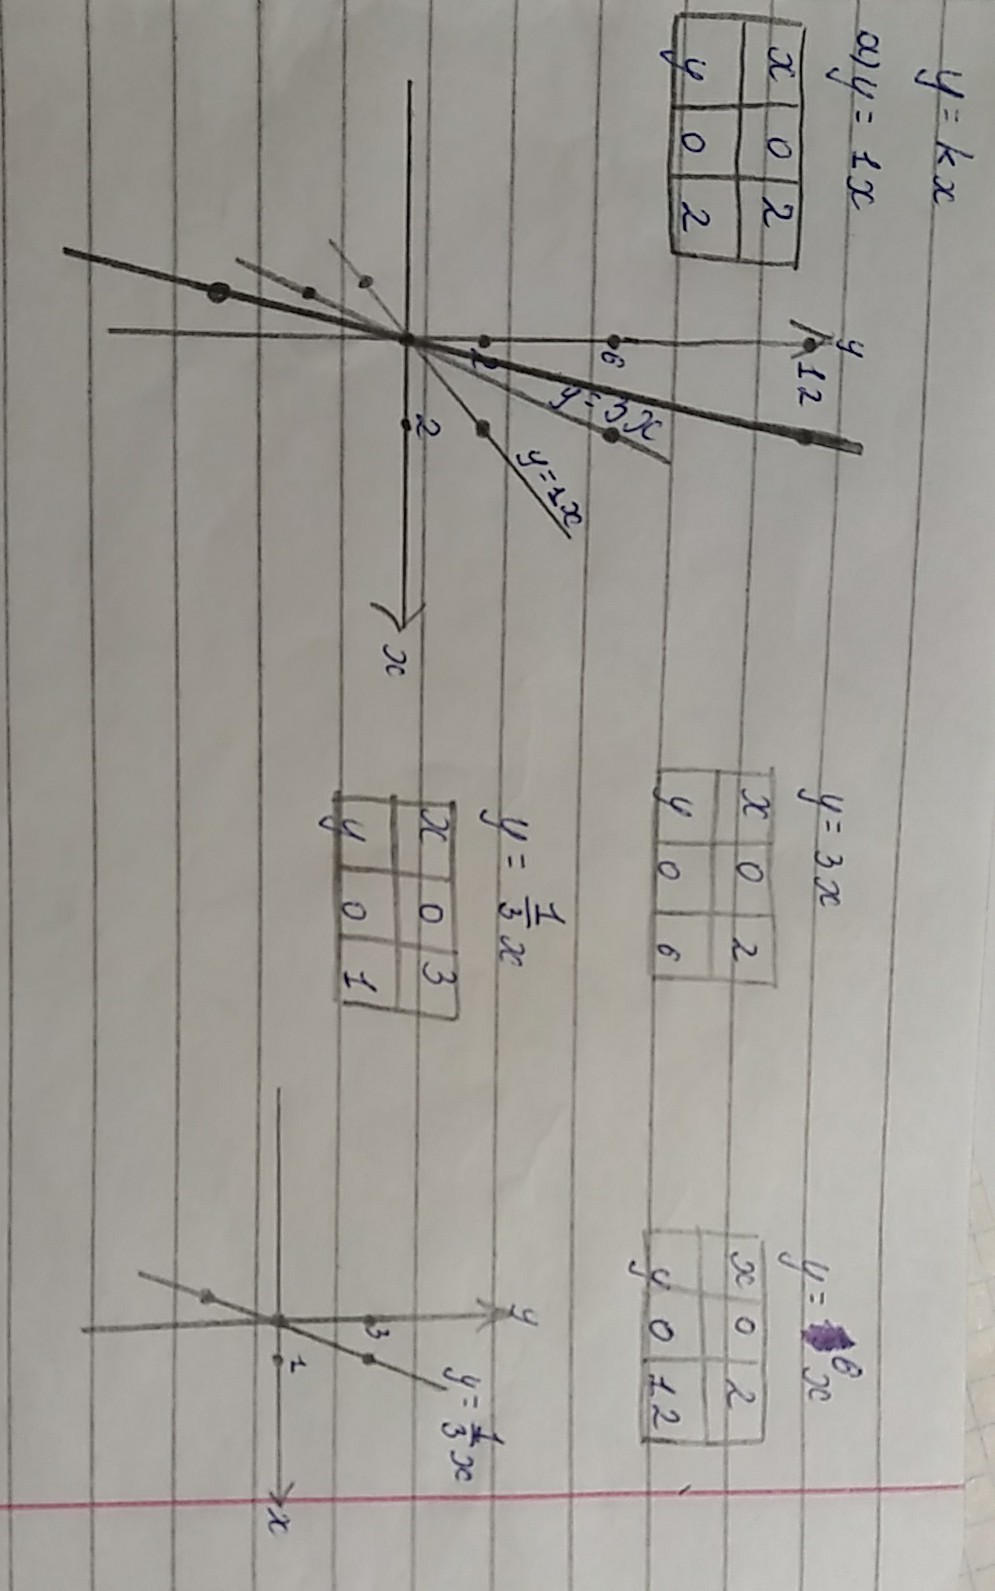 y = kx
a) y = 1x
x 0 2
y 0 2
y = 3x
x 0 2
y 0 6
y = 6x
x 0 2
y 0 12
y
12
6
2
y = 3x
y = 1x
2
x
y = 1/3 x
x 0 3
y 0 1
y
3
1
y = 1/3 x
x